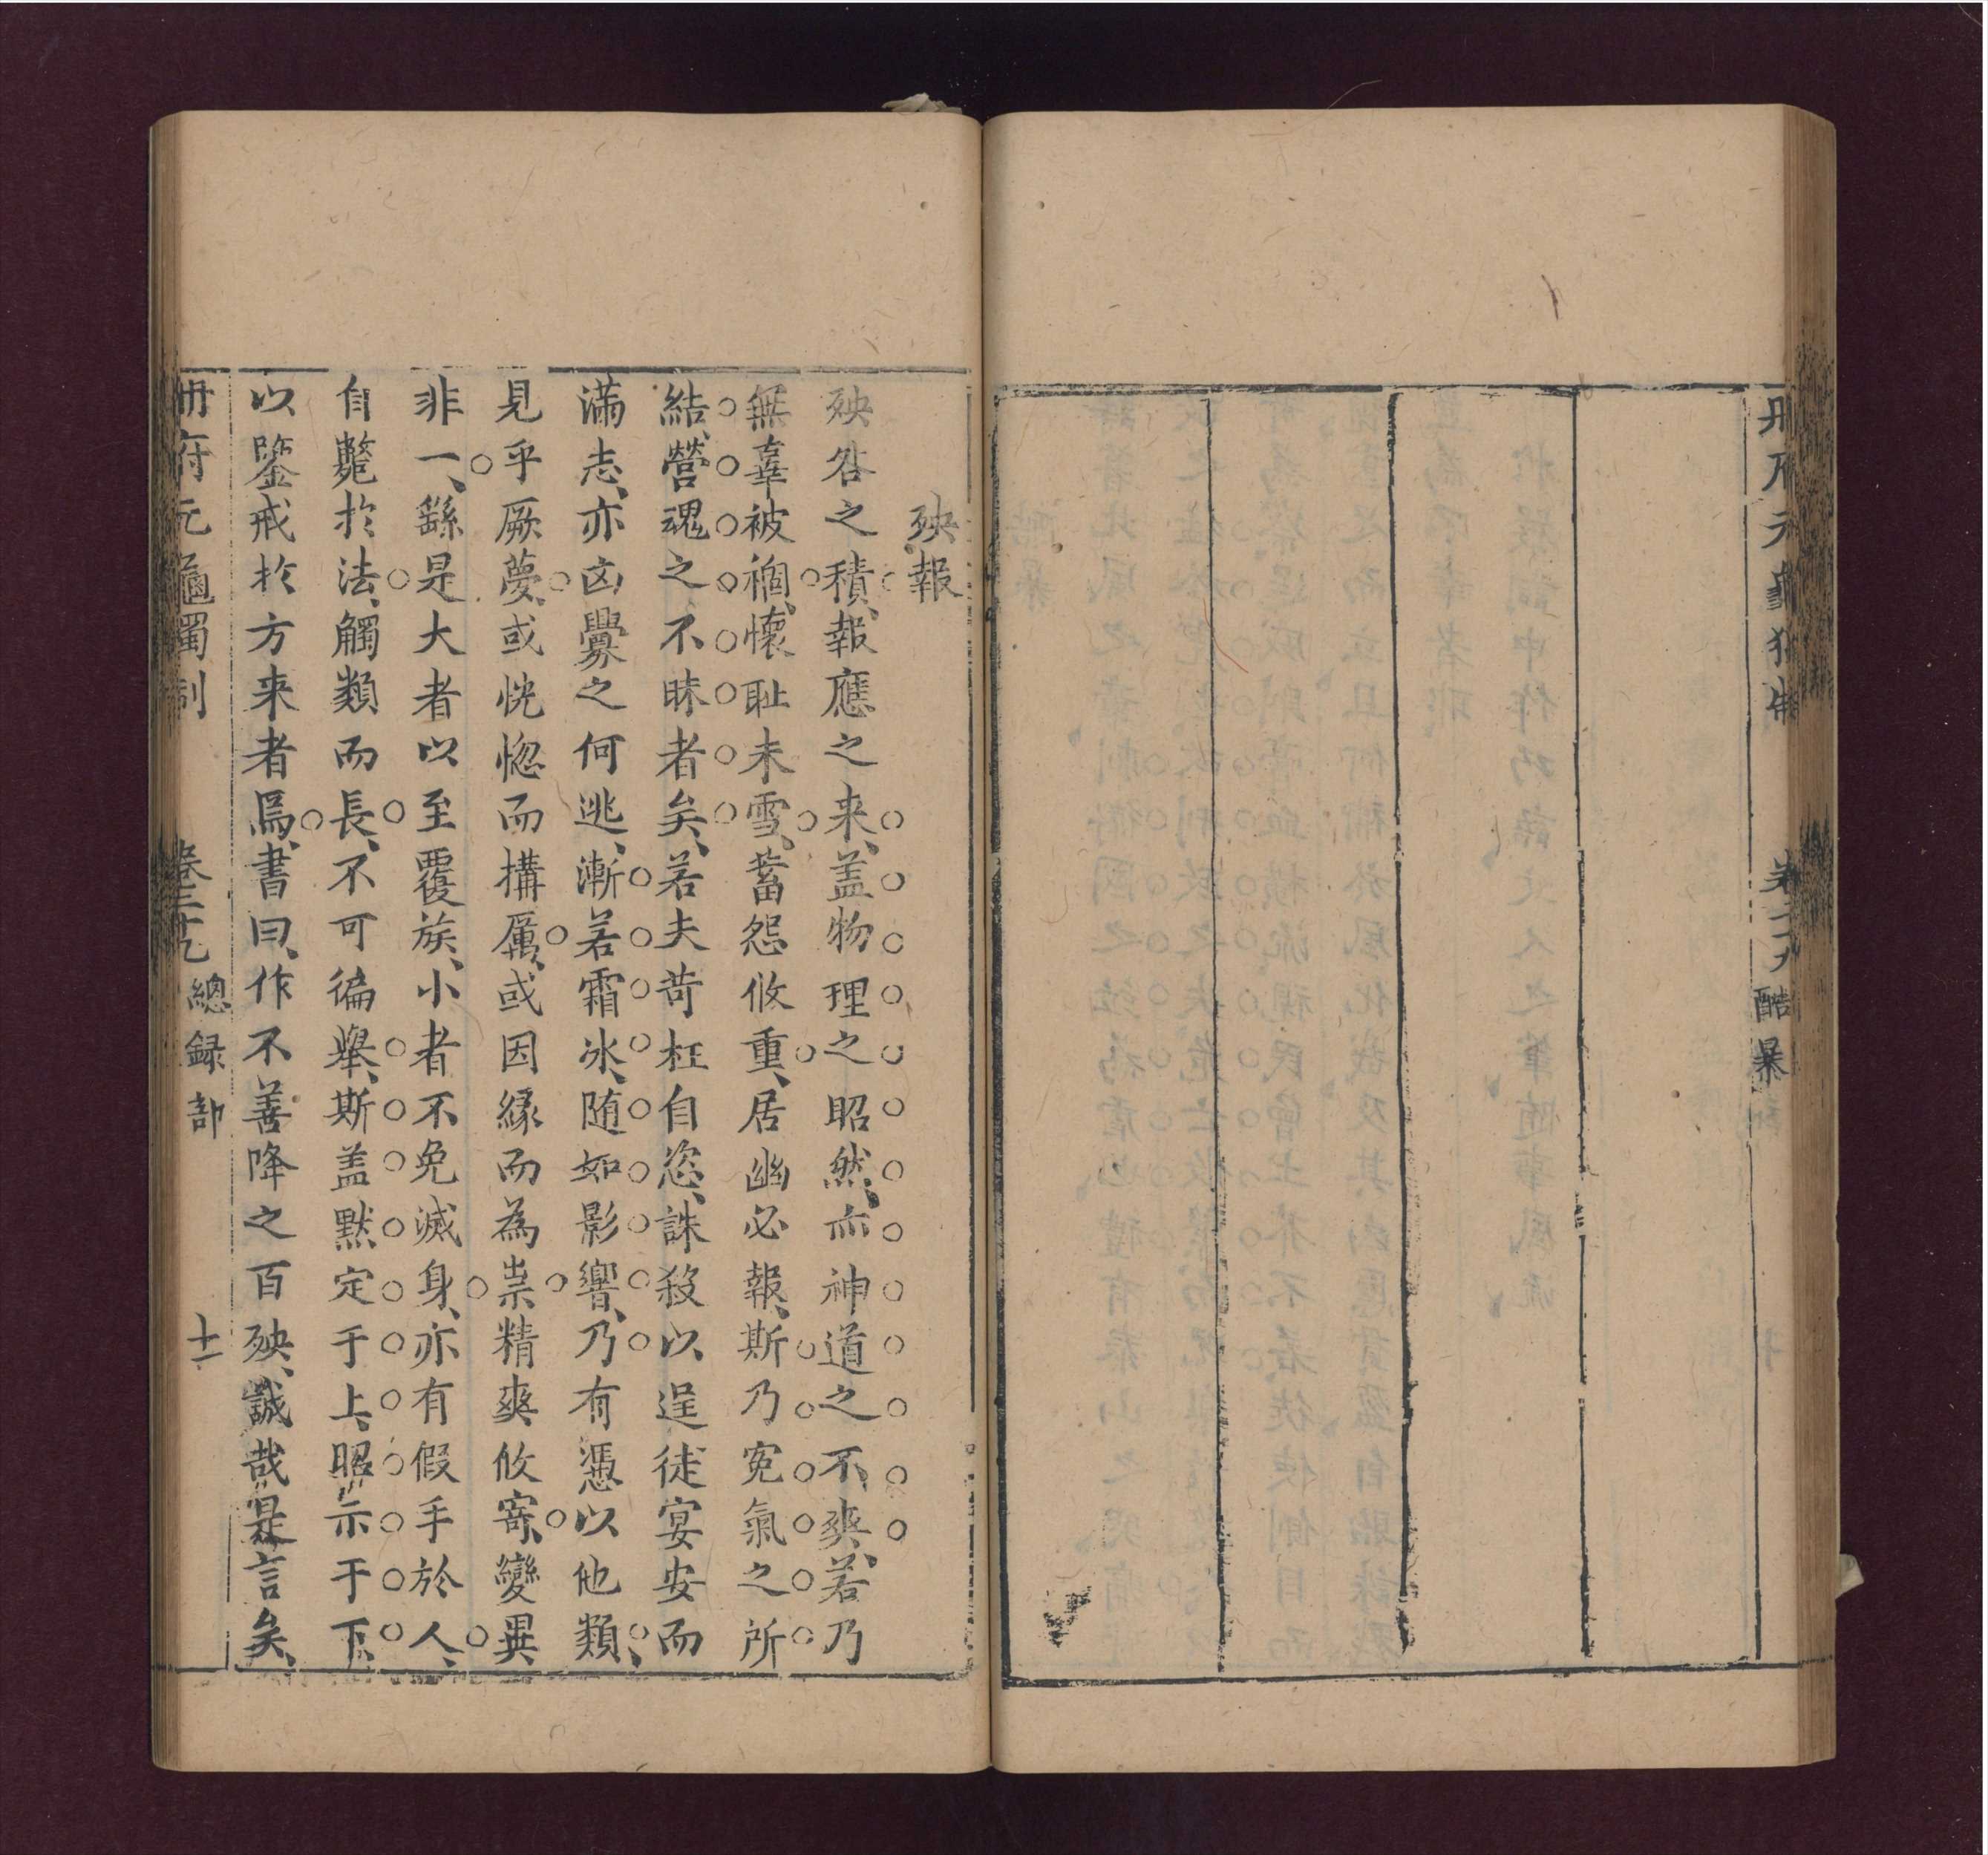 冊府元龜獨制
酷暴
殃報
殃咎之積、報應之来、盖物理之昭然、亦神道之不爽、若乃
無辜被禍、懷耻未雪、蓄怨攸重、居幽必報、斯乃寃氣之所
結、營魂之不昧者矣、若夫苛枉自恣、誅殺以逞徒宴安而
滿志、亦凶釁之何逃、漸若霜冰、随如影響、乃有憑以他類、
見乎厥夢、或恍惚而搆厲、或因緣而為祟精爽攸寄、變異
非一、繇是大者以至覆族、小者不免滅身、亦有假手於人、
自斃於法、觸類而長、不可徧舉、斯盖黙定于上、昭示于下、
以鑒戒於方来者焉、書曰、作不善降之百殃、誠哉是言矣、
冊府元龜獨制 總録部 十一